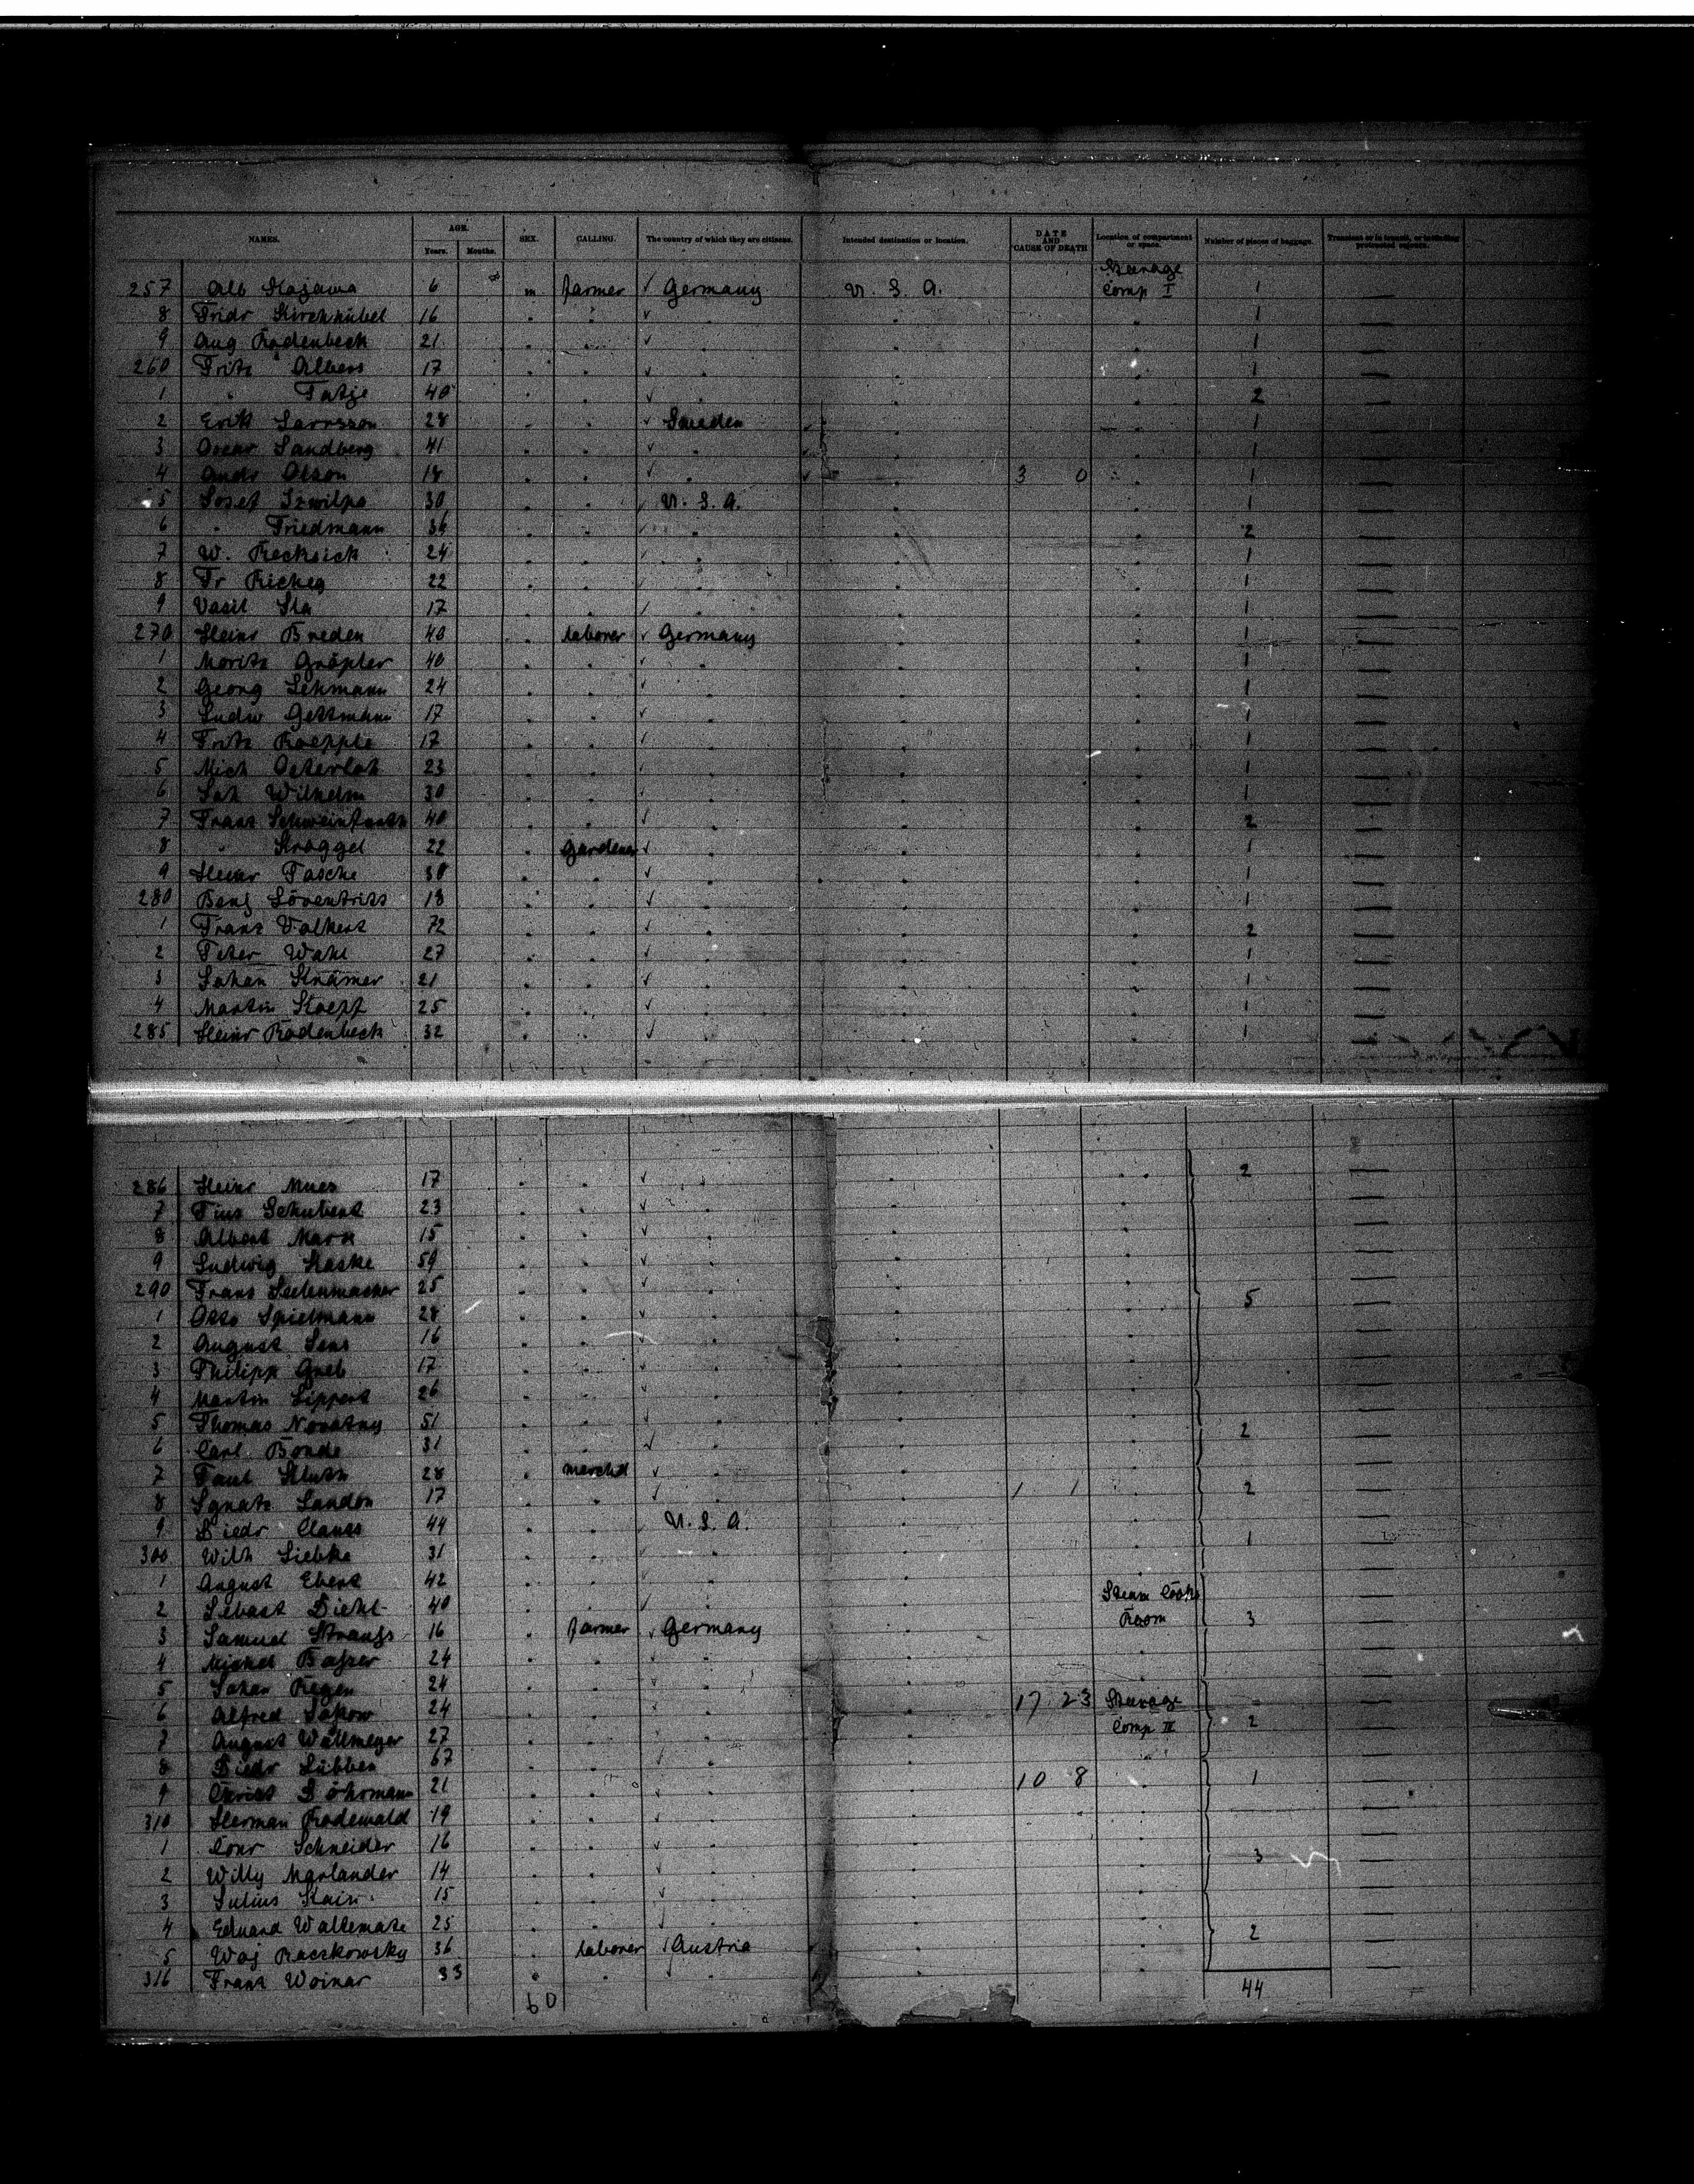 NAMES. AGE. Years. Months. SEX. CALLING. The country of which they are citizens. Intended destination or location. DATE AND CAUSE OF DEATH Location of compartment or space. Number of pieces of baggage. Transient or in transit, or including protracted sojourn.
Steerage
257 Alb 6 m farmer ✓ Germany U. S. A. Comp I 1 —
8 Fridr Kirchhübel 16 " " ✓ " " " 1 —
9 Aug Rodenbeck 21 " " ✓ " " " 1 —
260 Fritz Albers 17 " " ✓ " " " 1 —
1 " Tatje 40 " " ✓ " " " 2 —
2 Erik Larrsson 28 " " ✓ Sweden " " 1 —
3 Oscar Sandberg 41 " " ✓ " " " 1 —
4 Andr Olson 18 " " ✓ " " 3 0 " 1 —
5 Josef 30 " " ✓ U. S. A. " " 1 —
6 " Friedmann 36 " " ✓ " " " 2 —
7 W. Recksick 24 " " ✓ " " " 1 —
8 Fr 22 " " ✓ " " " 1 —
9 Vasil 17 " " ✓ " " " 1 —
270 Heinr Breden 40 " laborer ✓ Germany " " 1 —
1 Moritz Gröpler 40 " " ✓ " " " 1 —
2 Georg Lehmann 24 " " ✓ " " " 1 —
3 Ludw Gettmann 17 " " ✓ " " " 1 —
4 Fritz Roepple 17 " " ✓ " " " 1 —
5 Mich Osterloh 23 " " ✓ " " " 1 —
6 Joh Wilhelm 30 " " ✓ " " " 1 —
7 Franz 40 " " ✓ " " " 2 —
8 " Kroggel 22 " gardener ✓ " " " 1 —
9 Heinr Pasche 30 " " ✓ " " " 1 —
280 Benj Löventritt 18 " " ✓ " " " 1 —
1 Franz Volkert 72 " " ✓ " " " 2 —
2 Peter Wahl 27 " " ✓ " " " 1 —
3 Johan Krämer 21 " " ✓ " " " 1 —
4 Martin Koepf 25 " " ✓ " " " 1 —
285 Heinr Rodenbeck 32 " " ✓ " " " 1 —
286 Heinr Mues 17 " " ✓ " " " 2 —
7 Pius Schubert 23 " " ✓ " " " —
8 Albert Marx 15 " " ✓ " " " —
9 Ludwig Kaske 59 " " ✓ " " " —
290 Franz 25 " " ✓ " " " 5 —
1 Otto Spielmann 28 " " ✓ " " " —
2 August Sens 16 " " ✓ " " " —
3 Philipp Greb 17 " " ✓ " " " —
4 Martin Lippert 26 " " ✓ " " " —
5 Thomas Novatny 51 " " ✓ " " " 2 —
6 Carl Bonde 31 " " ✓ " " " —
7 Paul 28 " merchd ✓ " " " —
8 Ignatz Landon 17 " " ✓ " " 1 1 " 2 —
9 Diedr Clauss 44 " " U. S. A. " " 1 —
300 Wilh Liebke 31 " " ✓ " " " —
1 August Ebert 42 " " ✓ " " —
2 Sebast Diehl 40 " " ✓ " " Steam Cooks —
3 Samuel Strauss 16 " farmer ✓ Germany " Room 3 —
4 Michel 24 " " ✓ " " " —
5 Johan Regen 24 " " ✓ " " " —
6 Alfred 24 " " ✓ " " 17 23 Steerage —
7 August Wallmeyer 27 " " ✓ " " Comp II 2 —
8 Diedr Lübben 67 " " ✓ " " " —
9 Christ Döhrmann 21 " " ✓ " " 10 8 " 1 —
310 Herman Rodewald 19 " " ✓ " " " —
1 Conr Schneider 16 " " ✓ " " " —
2 Willy Marlander 14 " " ✓ " " " 3 —
3 Julius 15 " " ✓ " " " —
4 Eduard Waltemate 25 " " ✓ " " " —
5 Woj Raczkowsky 36 " laborer ✓ Austria " " 2 —
316 Franz Woinar 33 " " ✓ " " " —
60 44